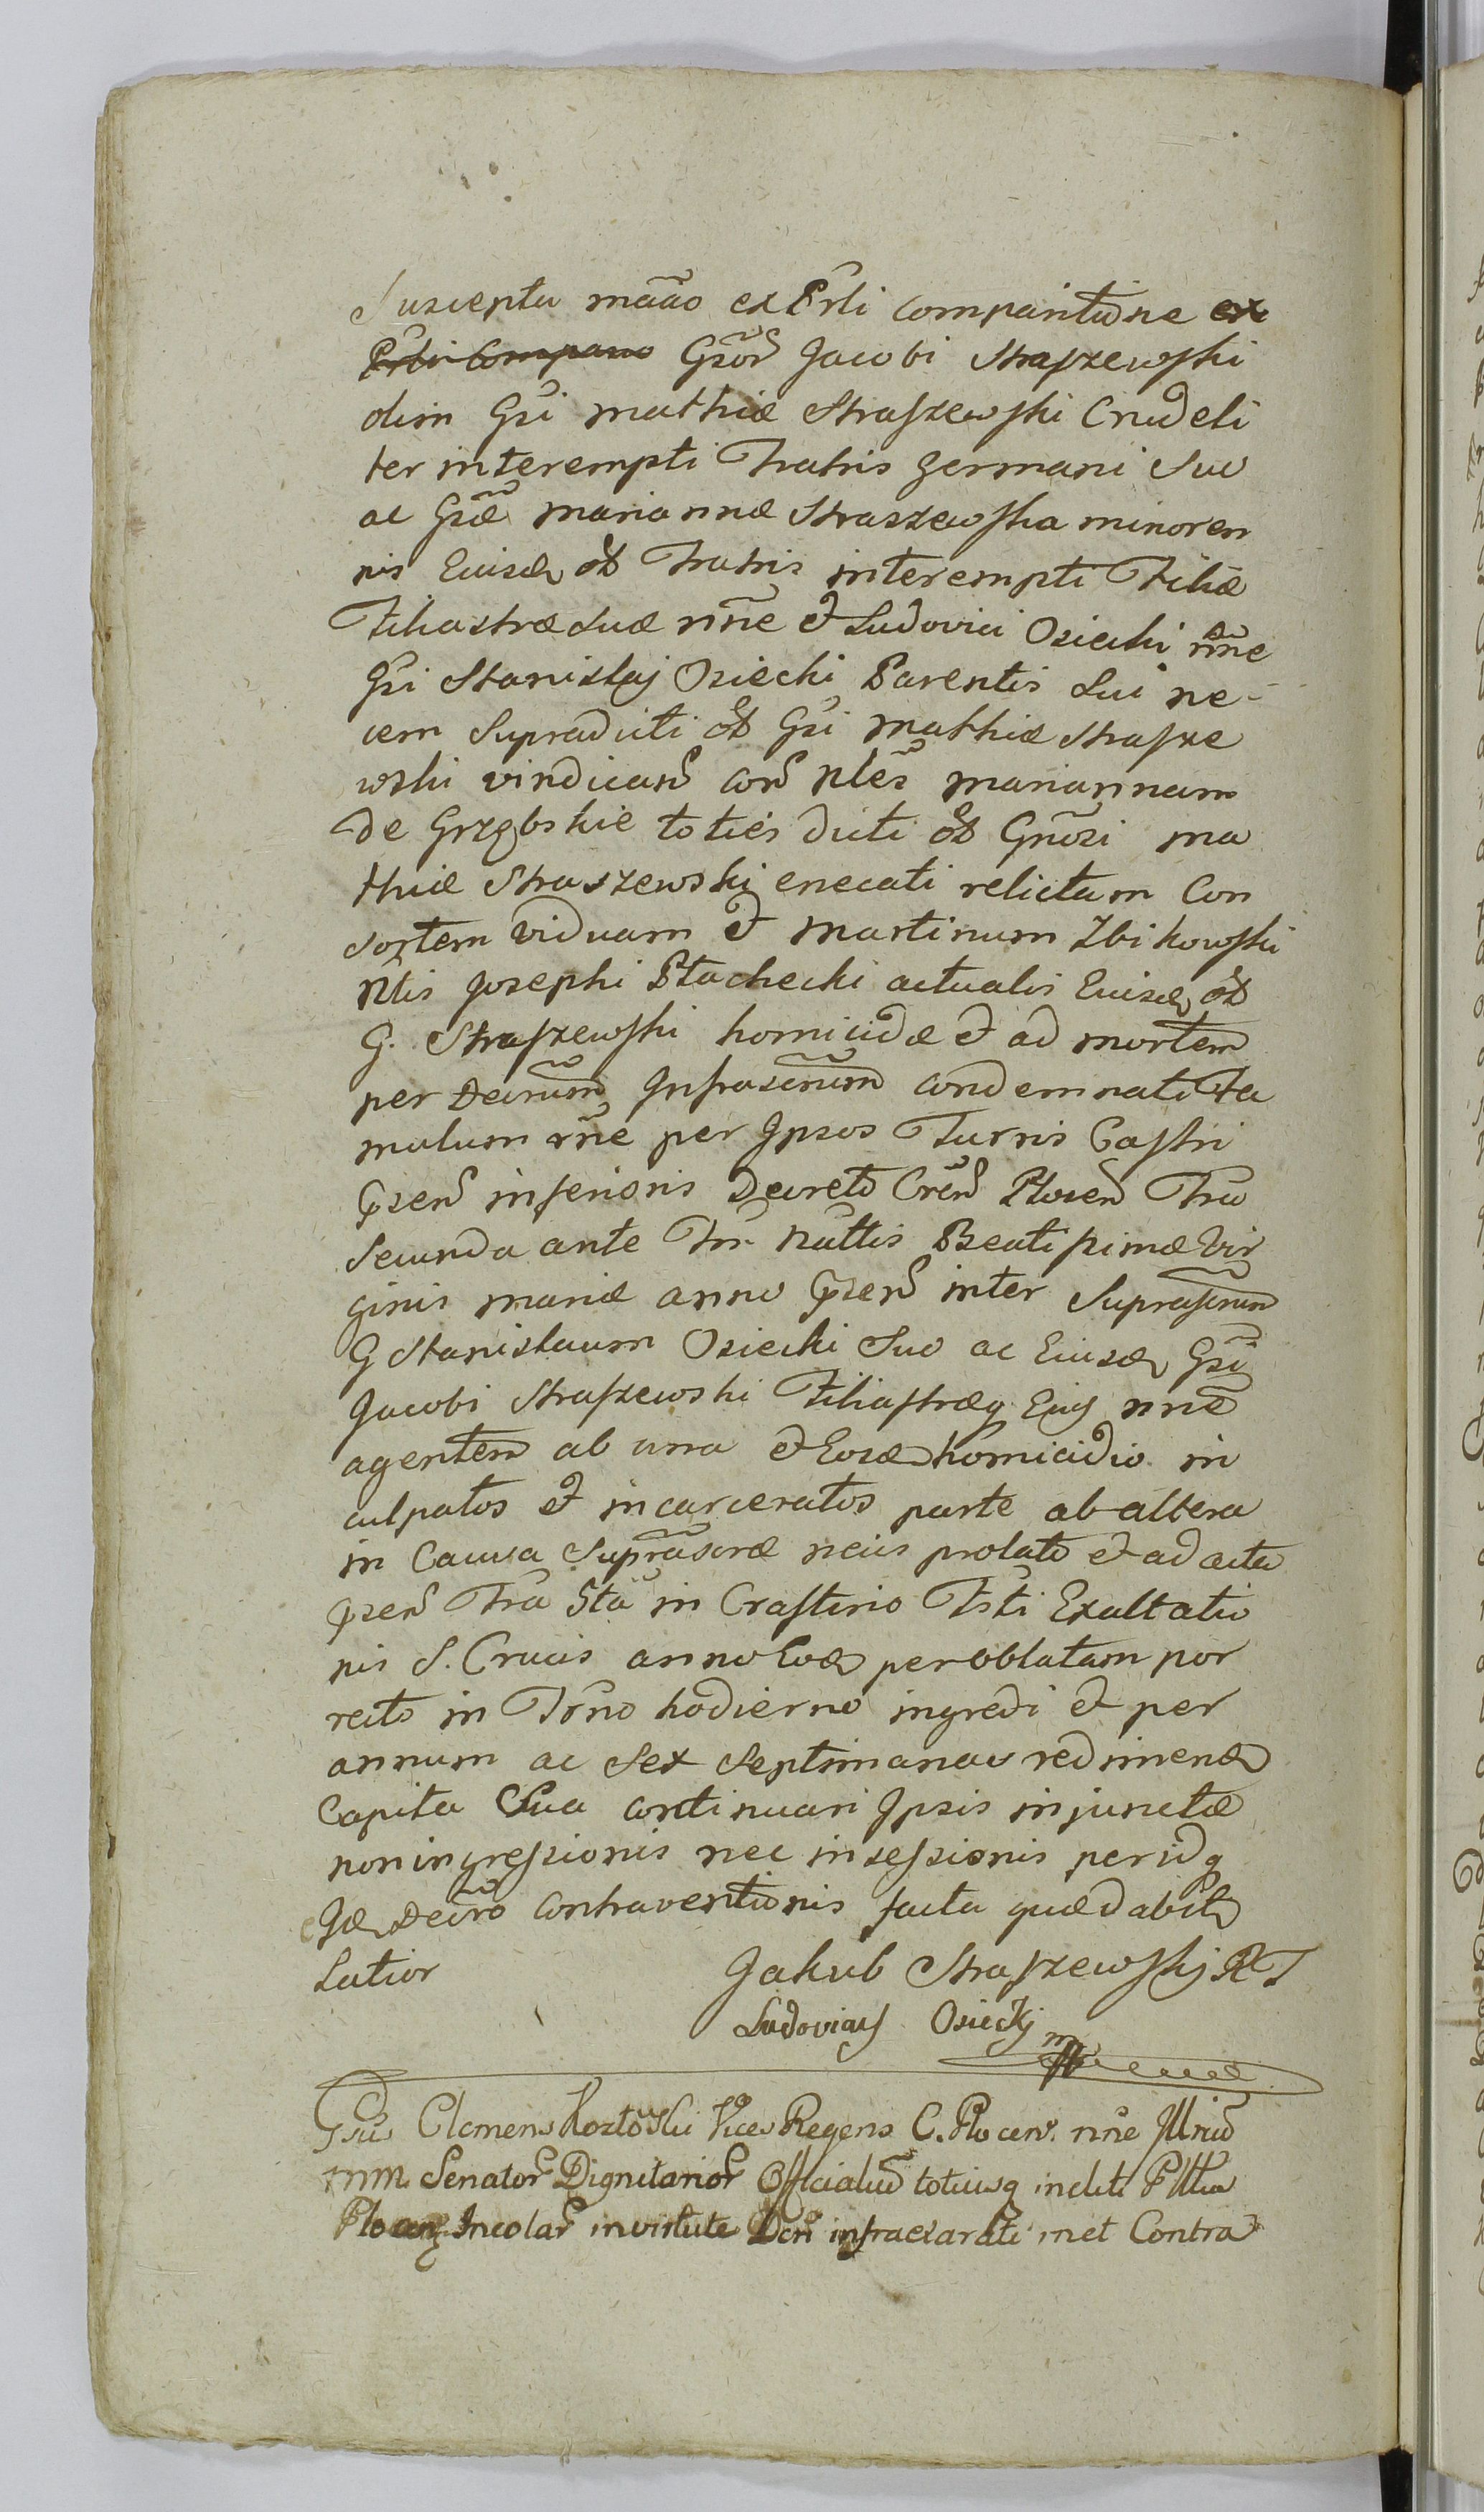 Suscepta mãão ex Prli comparitione ex
Prli Compano Gsõr Jacobi Straszewski
olim Gsi Mathiæ Straszewski Crudeli
ter interempti Fratris Germani Suo
ac Gsæ Mariannæ Straszewska minoren
nis Eiusd ol Fratris interempti Filiæ
Filiastræ Suæ nñe et Ludovici Osiecki nñe
Gsi Stanislaj Osiecki Parentis Sui ne-
cem Supradicti ol Gsi Mathiæ Strasze
wski vindican con Nles Mariannam
De Grzębskie toties dicti ol Gnõsi Ma
thiæ Straszewski enecati relictam Con
sortem viduam et Martinum Zbikowski
Nlis Josephi Płachecki actualis Eiusd ol
G. Straszewski homicidæ et ad mortem
per Decrum Infrascrum condemnati Fa
mulum rñe per Ipsos Turris Castri
Pszen inferioris Decreto Cren Plocen Fria
Secunda ante Fm Nattis Beatissimæ Vir
ginis Mariæ anno Pszen inter Suprascrum
G Stanislaum Osiecki Suo ac Eiusd Gsi
Jacobi Straszewski Filiastræq Eius nñe
agentem ab una et Eosd homicidio in
culpatos et incarceratos parte ab altera
in Causa Suprascræ necis prolato et ad acta
Pszen Fria 5ta in Crastino Fsti Exaltatio
nis S. Crucis anno Eod per oblatam por
recto in Frno hodierno ingredi et per
annum ac Sex Septimanas redimend
Capita Sua continuari Ipsis injunctæ
non ingressionis nec insessionis per idq
Id Decro contraventionis facta quæ dabit
Latior
Jakub Straszewski RT
Ludovicus Osiecki mp
Gsus Clemens Kozłoski Vices Regens C. Plocen. nñe Illriu
mm Senator Dignitarior Officialiu totiusq incliti Pttus
Plocen Incolar in virtute Dcri infraclarati met Contra